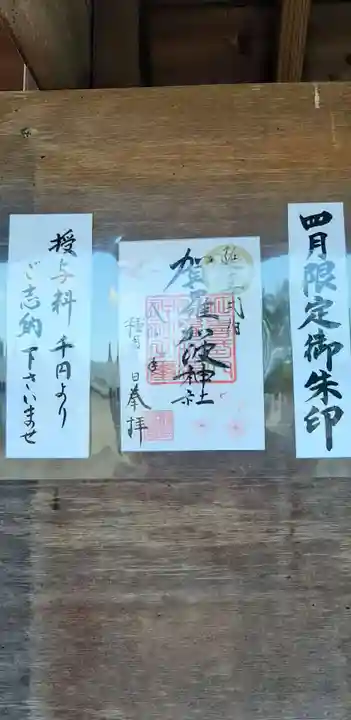 四月限定御朱印
延喜式内
賀羅加波神社
奉拝
日
授与料 千円より
ご志納下さいませ